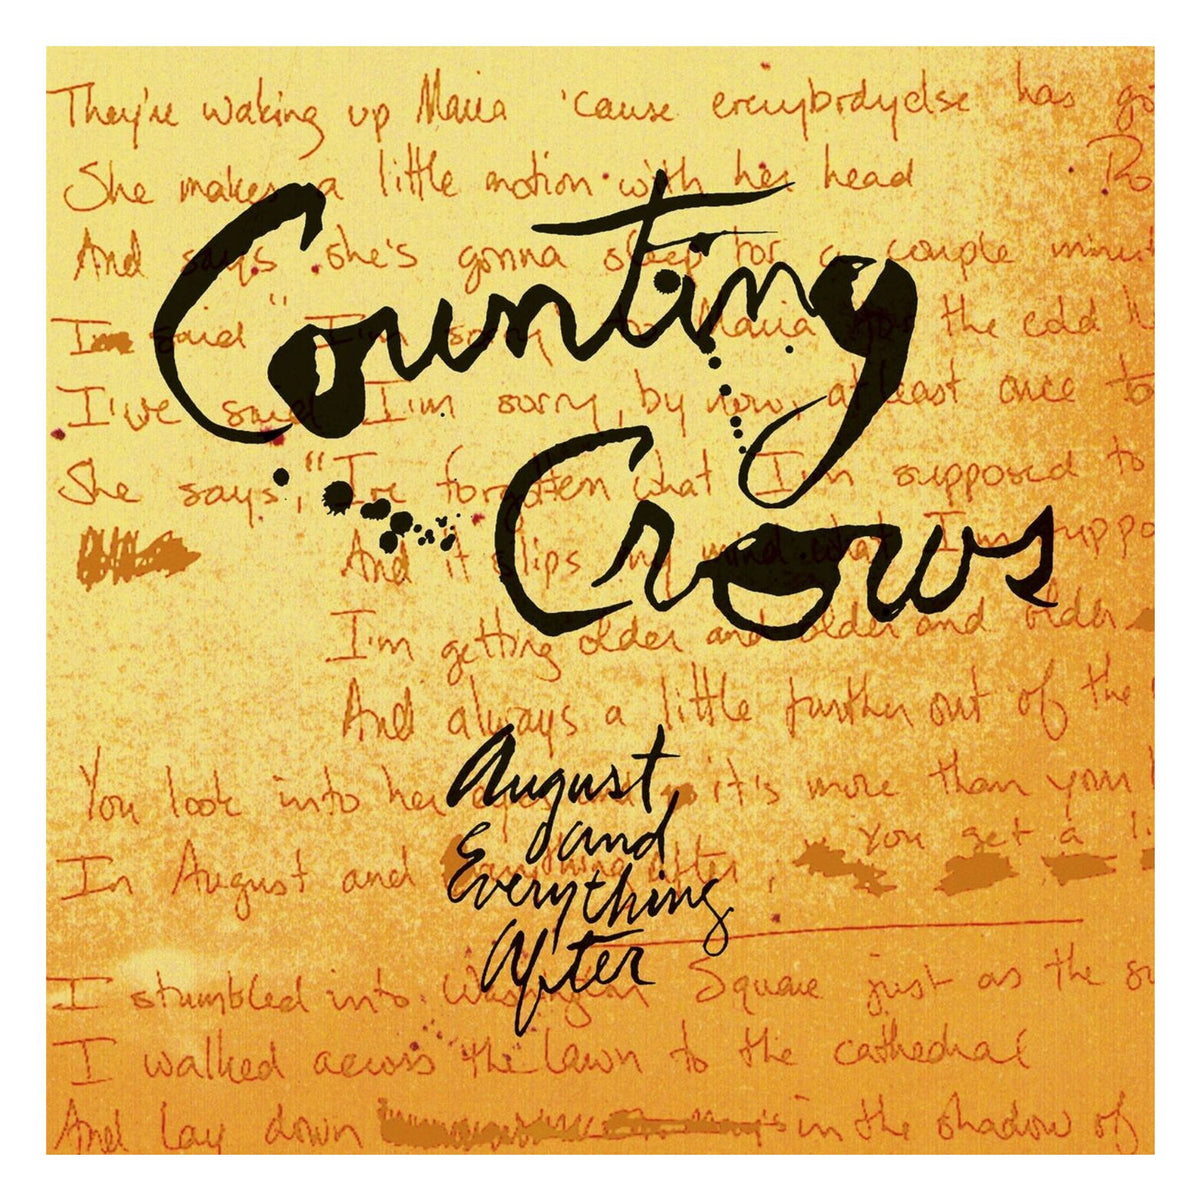 Counting
Crows
August
and
Everything
After
They're waking up Maria 'cause everybodyelse has go
She makes a little motion with her head Ro
And says she's gonna sleep for a couple minut
I'm said "I'm sorry" to Maria for the cold
I've said I'm sorry, by now, at least once to
She says, "I've forgotten what I'm supposed to
And it slips my mind what I'm suppo
I'm getting older and older and older
And always a little further out of the
You look into her eyes it's more than your
You get a li
In August and Everything After,
I stumbled into Washington Square just as the su
I walked across the lawn to the cathedral
And lay down in the shadow of